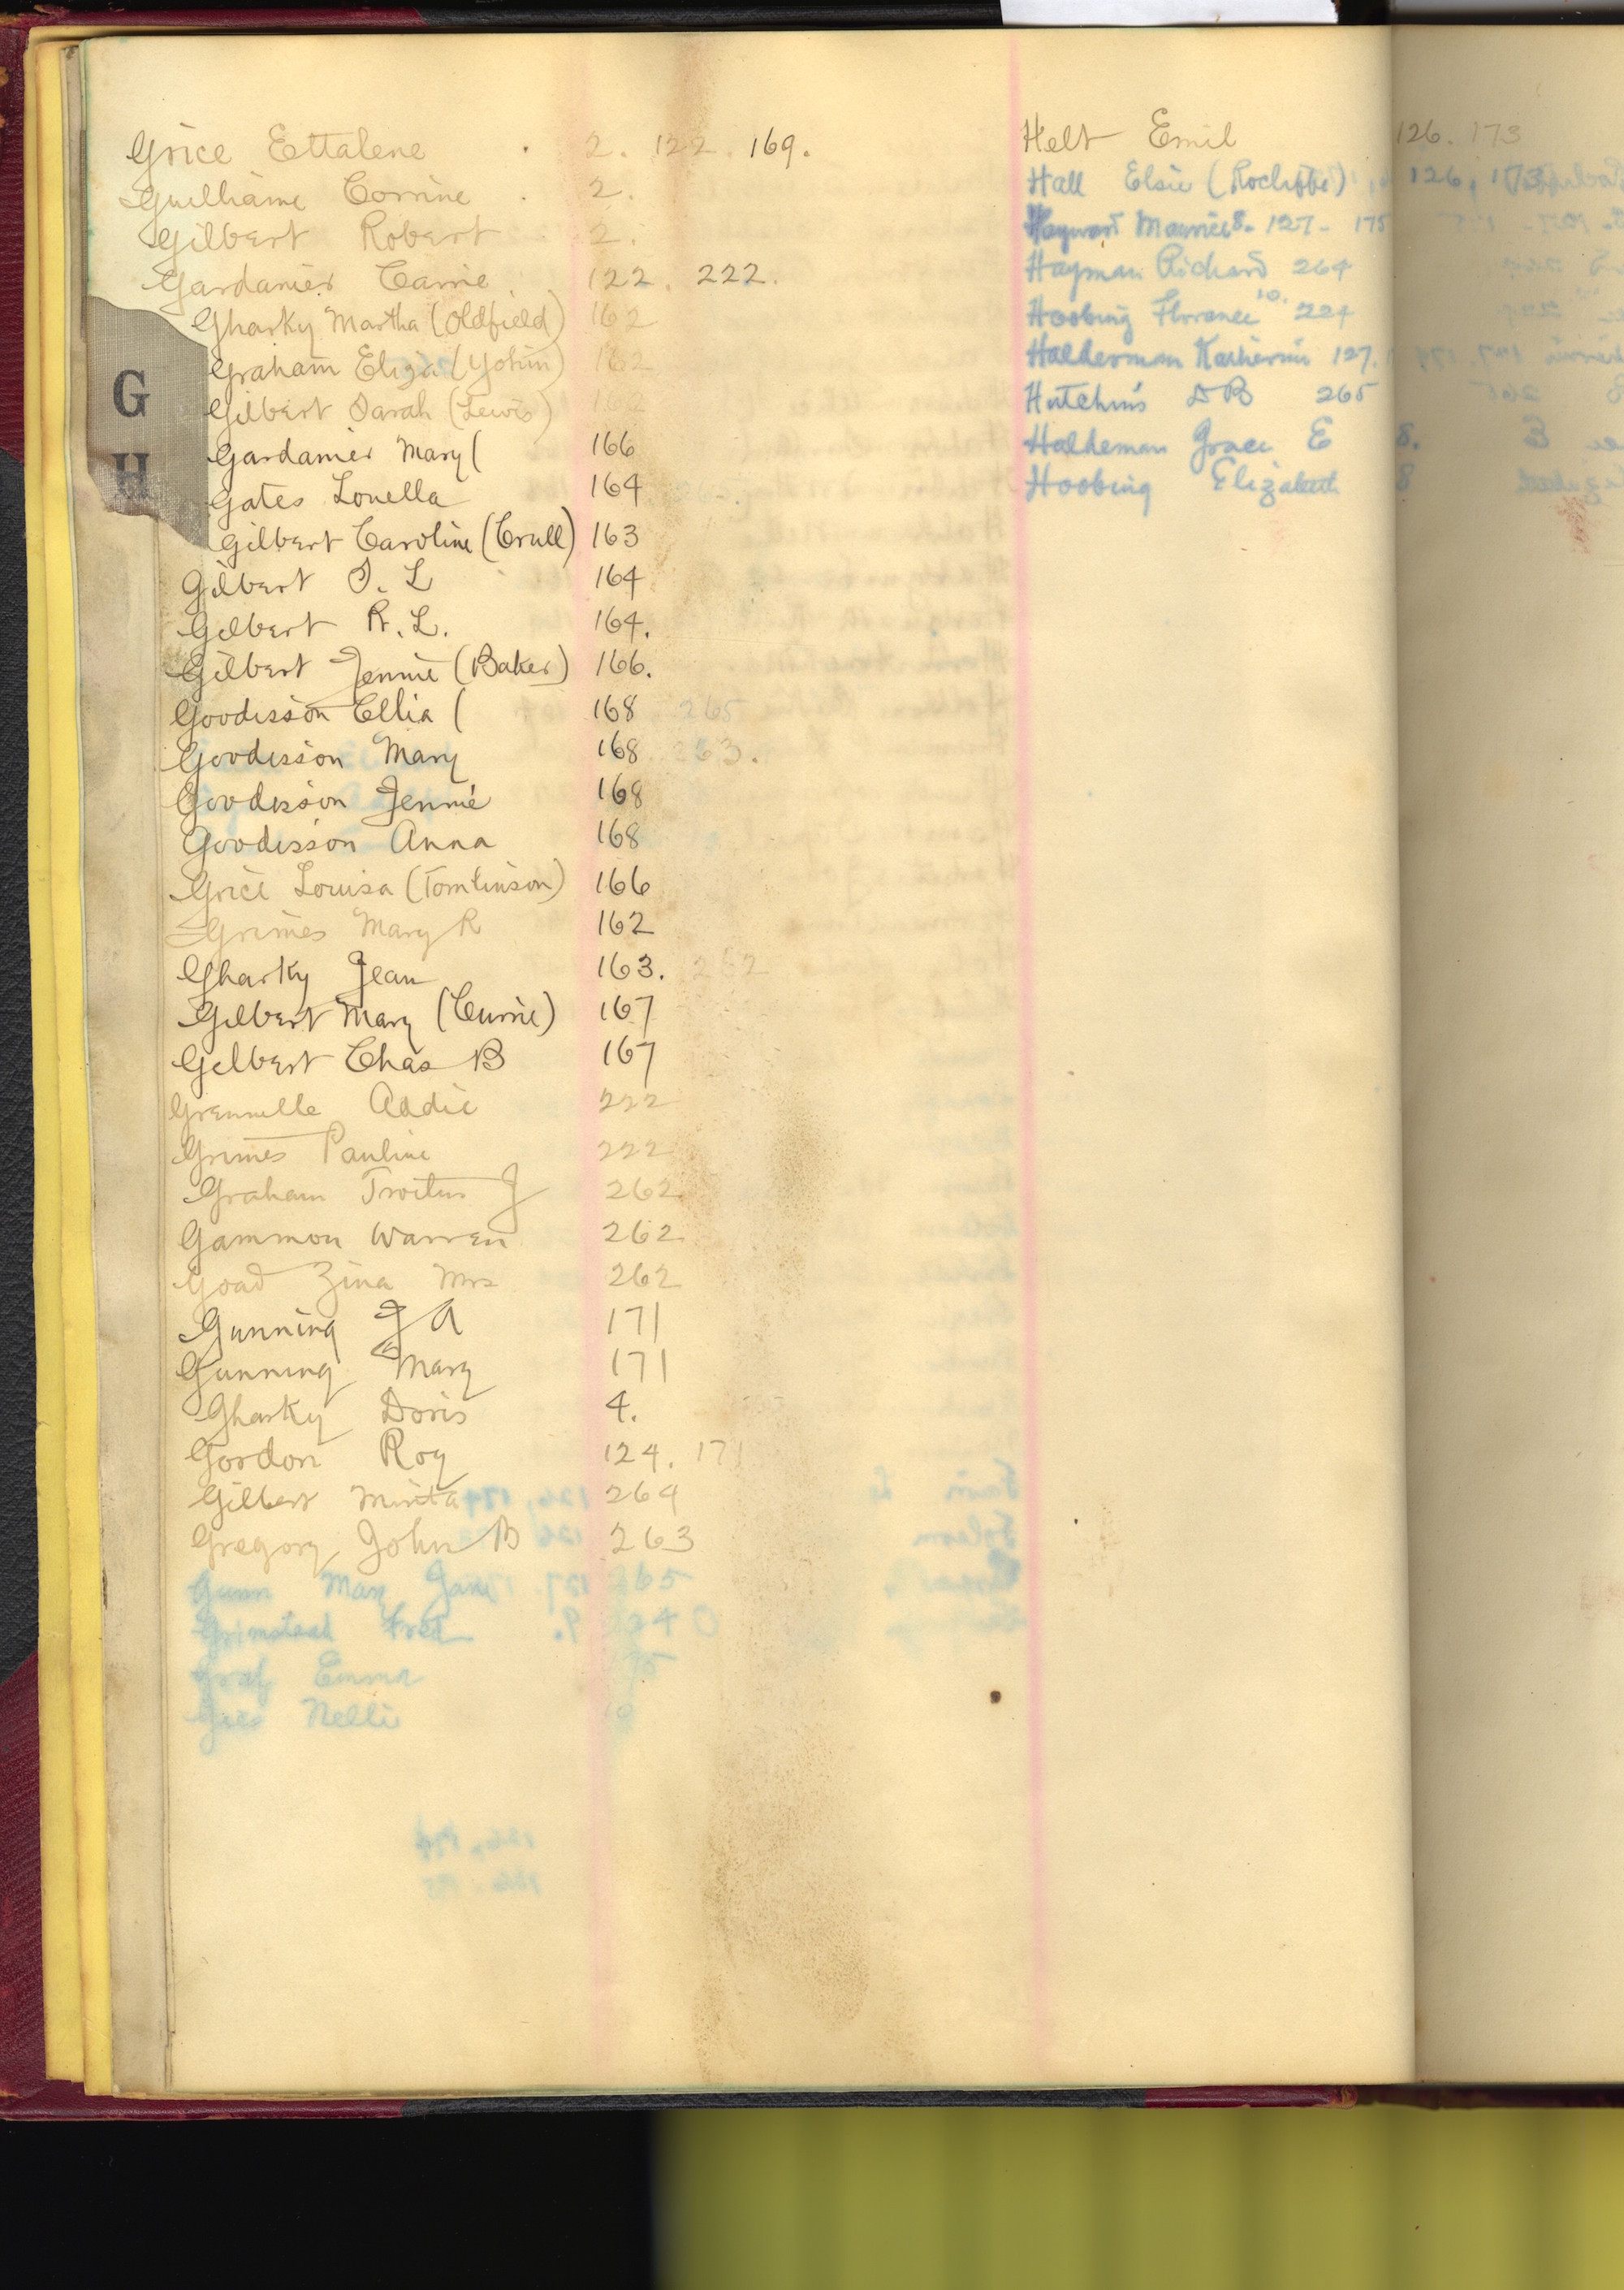 Grice Ettalene . 2. 122. 169.
Guilliame Corrine . 2.
Gilbert Robert 2.
Gardanier Carrie . 122. 222.
Gharky Martha (Oldfield) 162
Graham Eliza (Yohin) 162
Gilbert Sarah (Lewis) 162
G
H
Gardanier Mary ( 166
Gates Louella 164 265
Gilbert Caroline (Crull) 163
Gilbert S. L 164
Gilbert R. L. 164.
Gilbert Jennie (Baker) 166.
Goodisson Ellia ( 168 265
Goodisson Mary 168. 263.
Goodisson Jennie 168
Goodisson Anna 168
Grice Louisa (Tomlinson) 166
Grimes Mary R 162
Gharky Jean 163. 262
Gilbert Mary (Currie) 167
Gilbert Chas B 167
Grennelle Addie 222
Grimes Pauline 222
Graham J 262
Gammon Warren 262
Goad Zina Mrs 262
Gunning J A 171
Gunning Mary 171
Gharky Doris 4.
Gordon Roy 124. 171
Gilbert Minta 264
Gregory John B 263
Gunn Mary Jane 265
Fred
Graf Emma
Nelli
Helt Emil 126. 173
Hall Elsie (Rocliffe) 126, 173
Hayward Maurice 8. 127 - 175
Hayman Richard 264
Hoobing Florance 10. 224
Halderman Katherine 127.
Hutchins D B 265
Haldeman Grace E 8.
Hoobing Elizabeth 8